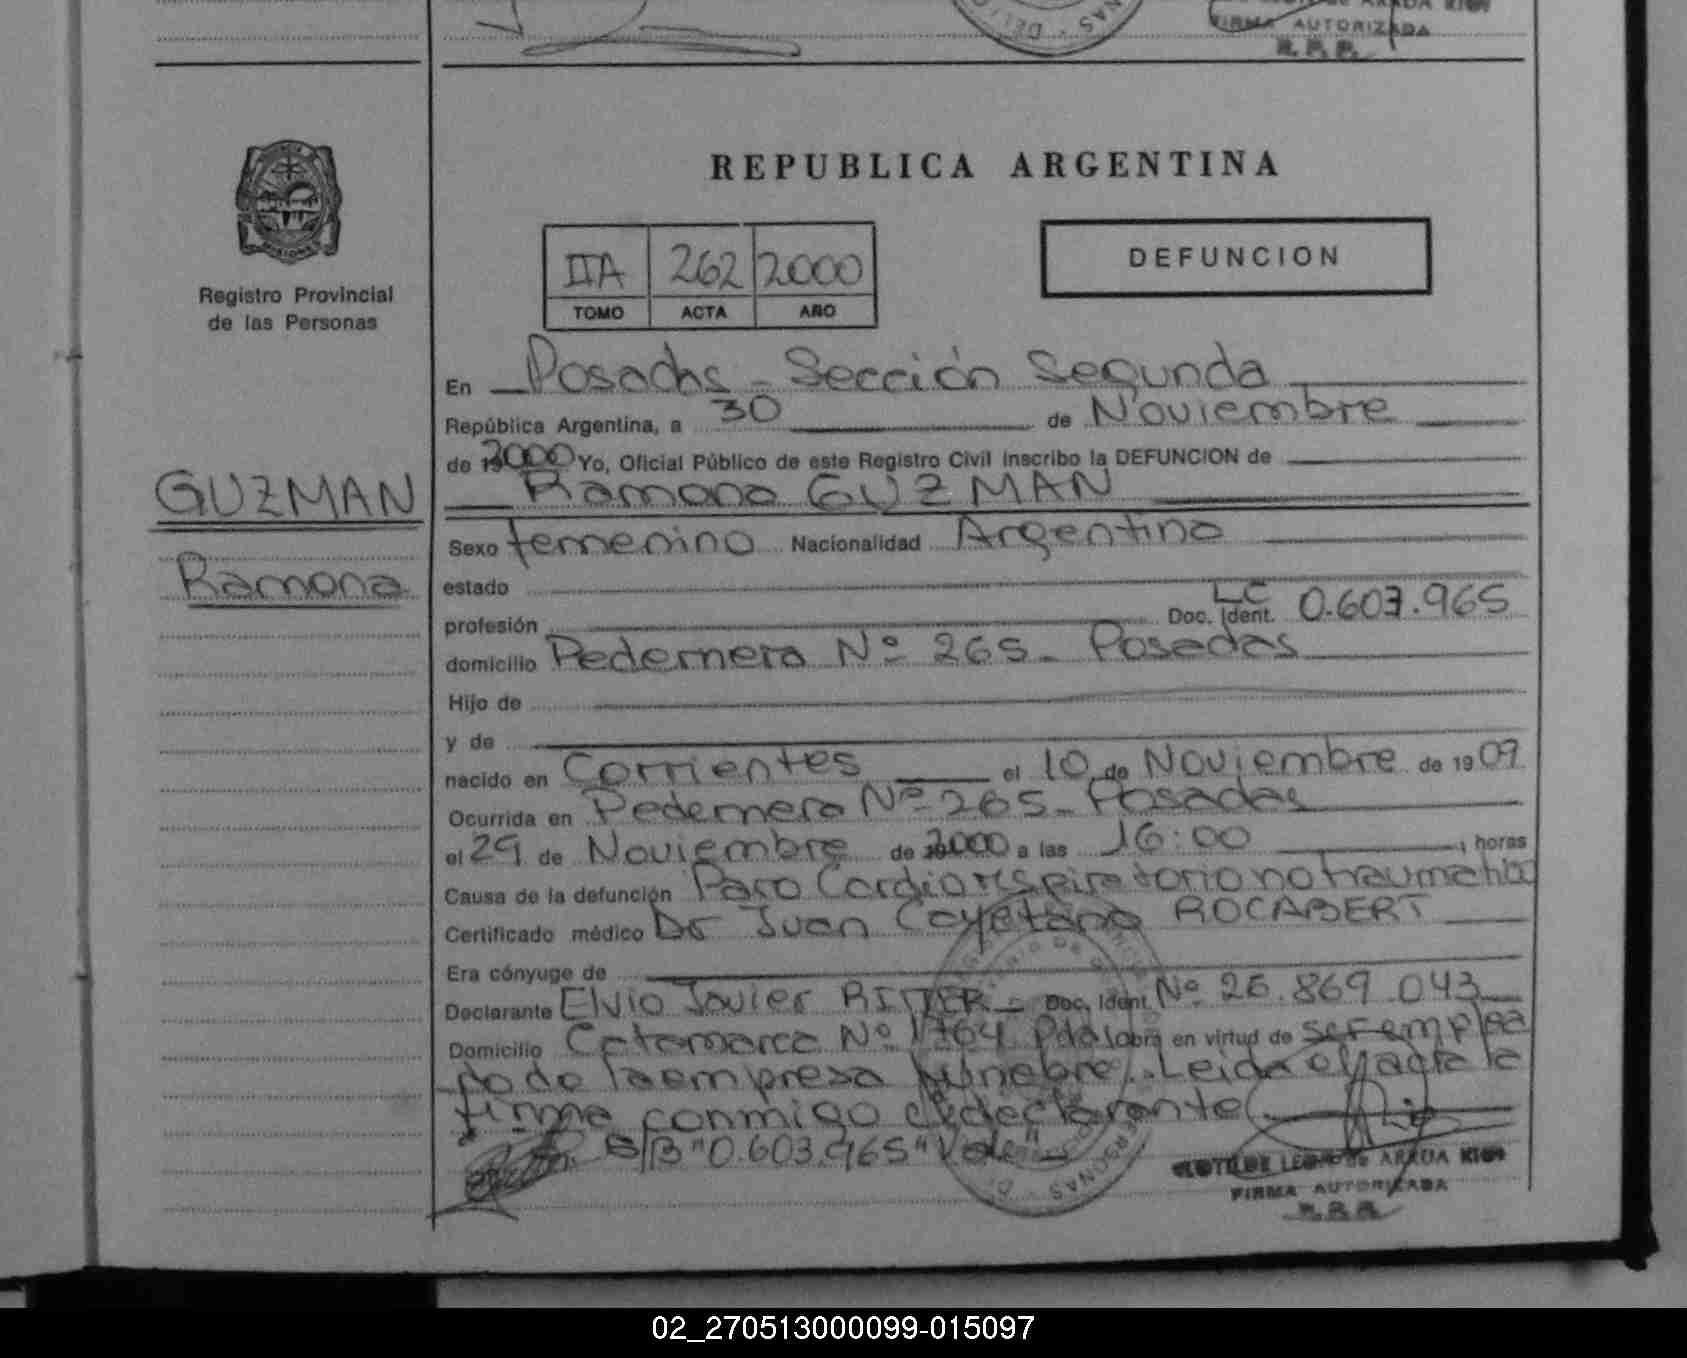 FIRMA AUTORIZADA
R. P. P.
REPUBLICA ARGENTINA
IIA 262 2000
TOMO ACTA AÑO
DEFUNCION
Registro Provincial
de las Personas
GUZMAN
Ramona
En Posadas - Sección Segunda
República Argentina, a 30 de Noviembre
de 2000 Yo, Oficial Público de este Registro Civil inscribo la DEFUNCION de
Ramona GUZMAN
Sexo femenino Nacionalidad Argentina
estado
profesión Doc. Ident. LC 0.603.965
domicilio Pedernera Nº 265 - Posadas
Hijo de
y de
nacido en Corrientes el 10 de Noviembre de 1909
Ocurrida en Pedernera Nº 265 - Posadas
el 29 de Noviembre de 2000 a las 16:00 horas
Causa de la defunción Paro Cardiorespiratorio no traumatico
Certificado médico Dr Juan Cayetano ROCABERT
Era cónyuge de
Declarante Elvio Javier RITTER - Doc. Ident. Nº 26.869.043
Domicilio Catamarca Nº 1764 Pdas obra en virtud de ser emplea
do de la empresa fúnebre. Leida el acta la
firma conmigo el declarante
S/B "0.603.965" Vale
FIRMA AUTORIZADA
02_270513000099-015097